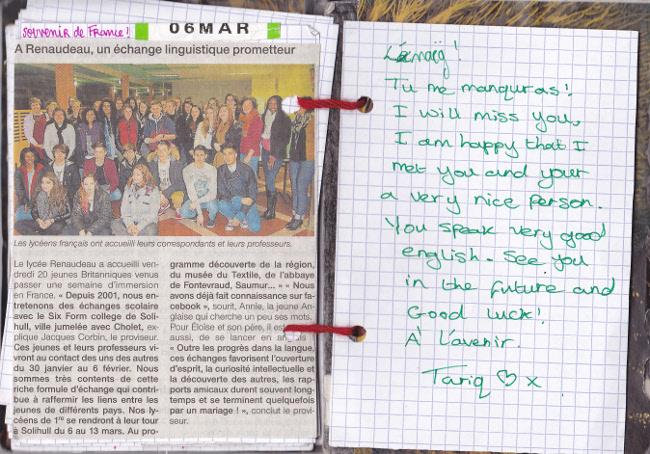 souvenir de France!
06 MAR
A Renaudeau, un échange linguistique prometteur
Les lycéens français ont accueilli leurs correspondants et leurs professeurs.
Le lycée Renaudeau a accueilli ven-
dredi 20 jeunes Britanniques venus
passer une semaine d'immersion
en France. « Depuis 2001, nous en-
tretenons des échanges scolaire
avec le Six Form college de Soli-
hull, ville jumelée avec Cholet, ex-
plique Jacques Corbin, le proviseur.
Ces jeunes et leurs professeurs vi-
vront au contact des uns des autres
du 30 janvier au 6 février. Nous
sommes très contents de cette
riche formule d'échange qui contri-
bue à raffermir les liens entre les
jeunes de différents pays. Nos ly-
céens de 1re se rendront à leur tour
à Solihull du 6 au 13 mars. Au pro-
gramme découverte de la région,
du musée du Textile, de l'abbaye
de Fontevraud, Saumur... » « Nous
avons déjà fait connaissance sur fa-
cebook », sourit, Annie, la jeune An-
glaise qui cherche un peu ses mots.
Pour Éloïse et son père, il est
aussi, de se lancer en
« Outre les progrès dans la langue,
ces échanges favorisent l'ouverture
d'esprit, la curiosité intellectuelle et
la découverte des autres, les rap-
ports amicaux durent souvent long-
temps et se terminent quelquefois
par un mariage ! », conclut le provi-
seur.
Tu me manquras!
I will miss you.
I am happy that I
met you and your
a very nice person.
You speak very good
english. See you
in the future and
Good luck!
À L'avenir.
Tariq ♡ x